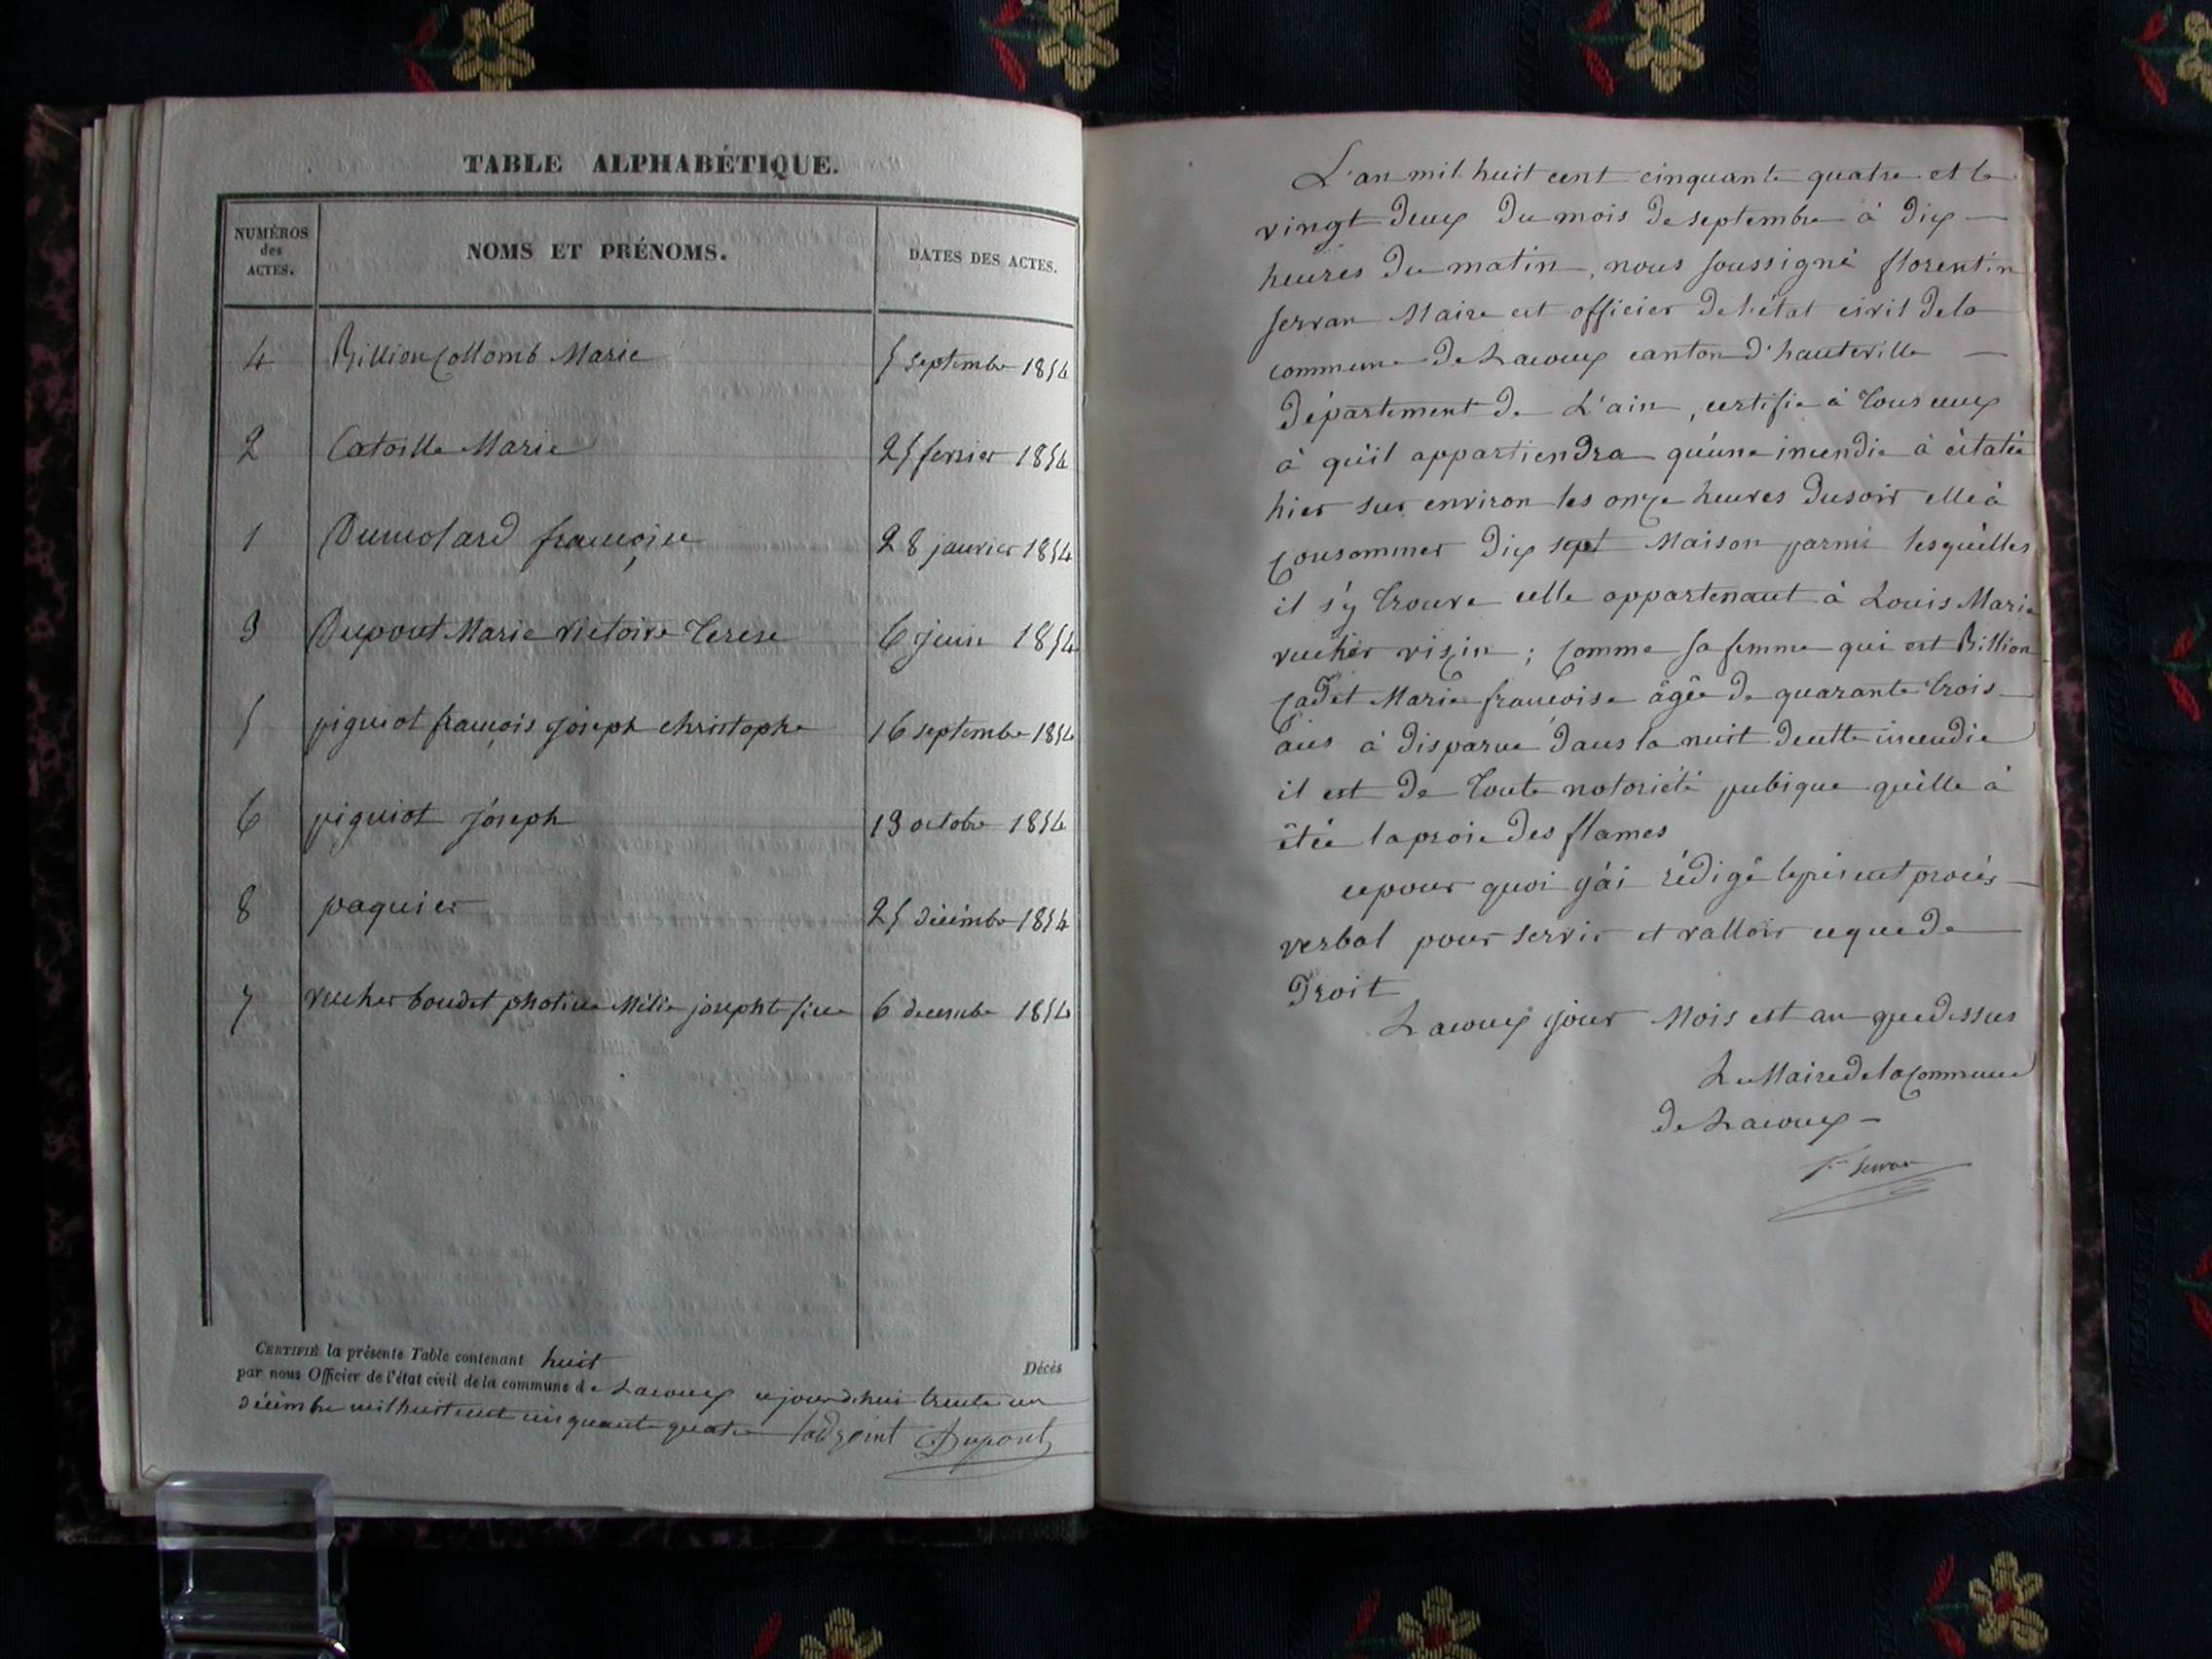 TABLE ALPHABÉTIQUE.
NUMÉROS
des
ACTES.
NOMS ET PRÉNOMS.
DATES DES ACTES.
4 Billion Collomb Marie 5 septembre 1854
2 Catoille Marie 25 fevrier 1854
1 Dumolard françoise 28 janvier 1854
3 Dupont Marie victoire Terese 6 juin 1854
5 piguiot françois joseph christophe 16 septembre 1854
6 piguiot joseph 19 octobre 1854
8 paquier 25 décémbre 1854
7 vucher boudet photine Mélie josephte 6 decembre 1854
CERTIFIÉ la présente Table contenant huit Décès
par nous Officier de l'état civil de la commune de Lacoux cejourd'hui trente un
décémbre mil huit cent cinquante quatre l'adjoint Dupont
L'an mil huit cent cinquante quatre et le
vingt deux du mois de septembre à dix
heures du matin, nous soussigné florentin
servan Maire et officier de l'état civil de la
commune de Lacoux canton d'hauteville
département de L'ain, certifie à tous ceux
à qu'il appartiendra qu'une incendie à éclatée
hier sur environ les onze heures du soir elle à
consommer dix sept Maison parmi lesquélles
il s'y trouve celle appartenant à Louis Marie
vuchér vizin ; comme sa femme qui est Billion
Cadet Marie francoise âgée de quarante trois
ans à disparue dans la nuit de cette incendie
il est de toute notoriété pubique qu'elle à
étée la proie des flames
ce pour quoi j'ai rédigé le présent procès
verbal pour servir et valloir ce que de
droit
Lacoux jour Mois est an que dessus
Le Maire de la Commune
de Lacoux
Servan